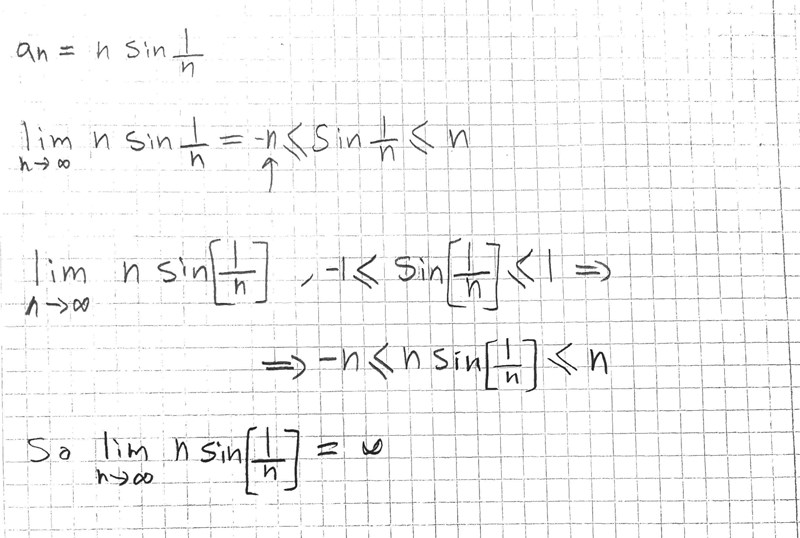 an = n sin 1/n
lim n→∞ n sin 1/n = -n ≤ sin 1/n ≤ n
↑
lim n→∞ n sin[1/n] , -1 ≤ sin[1/n] ≤ 1 ⇒
⇒ -n ≤ n sin[1/n] ≤ n
So lim n→∞ n sin[1/n] = ∞